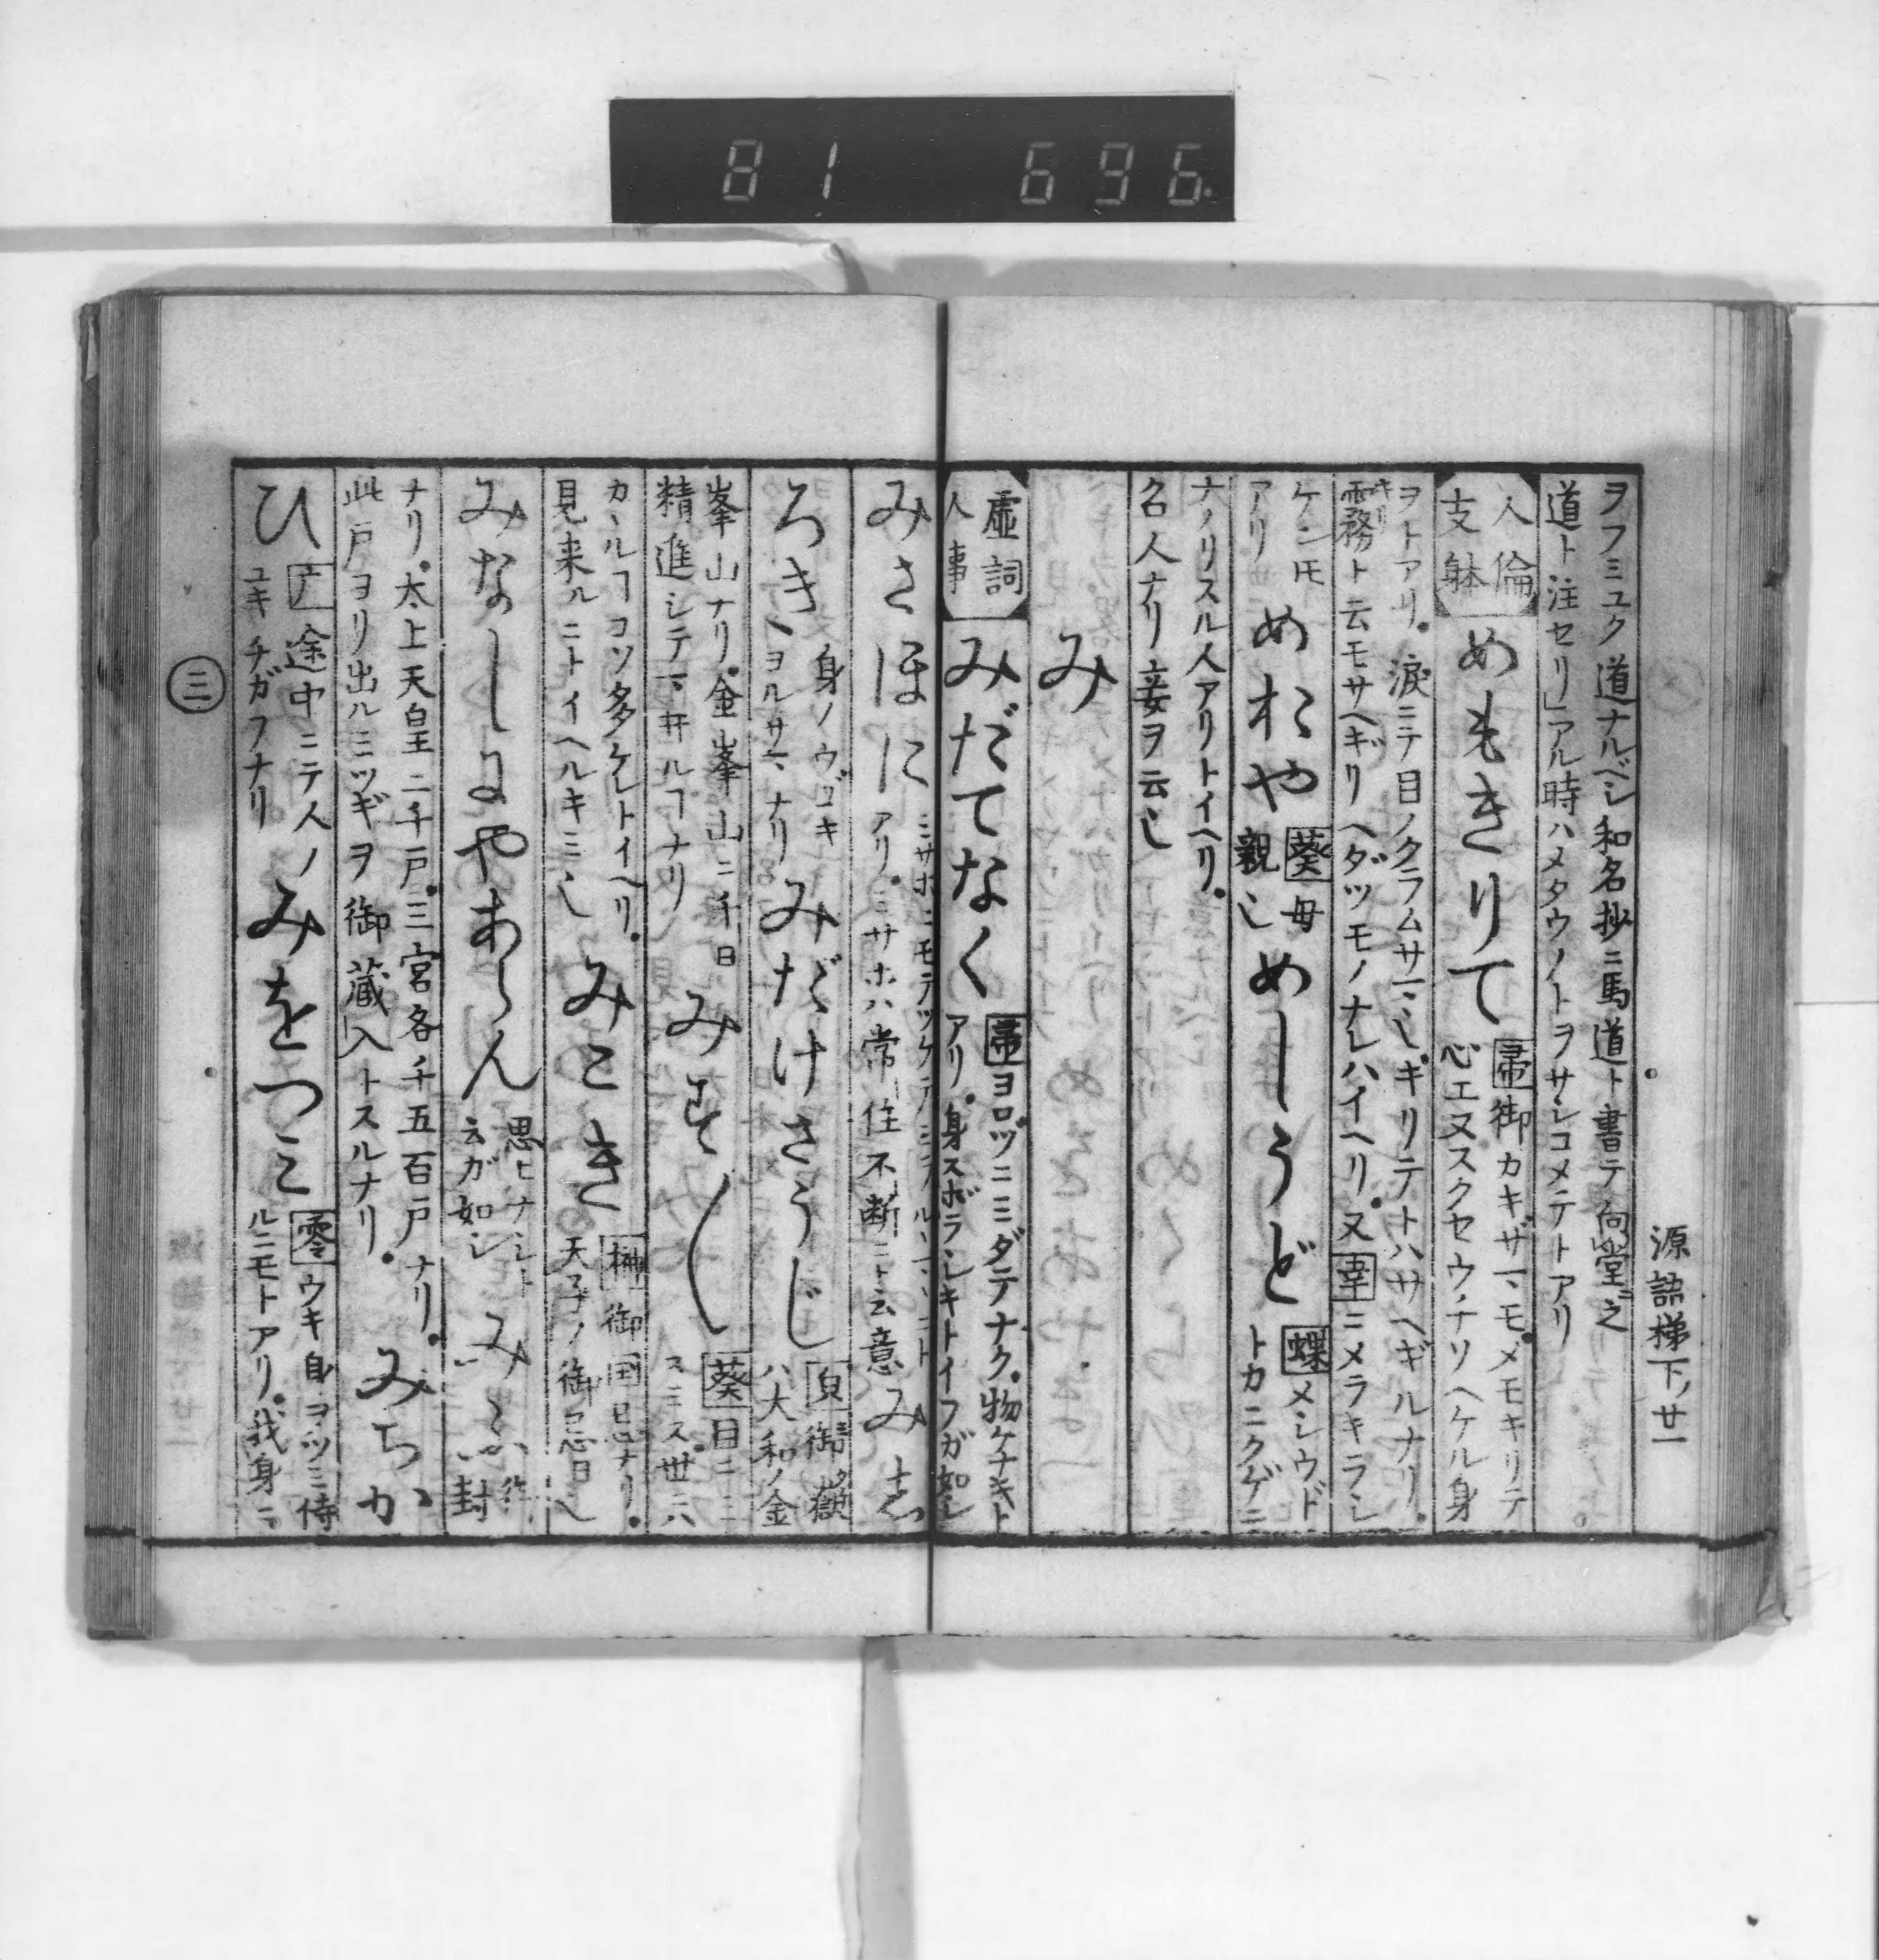 81 696
源語梯下ノ廿一
ヲフミユク道ナルベシ和名抄ニ馬道ト書テ向堂之
道ト注セリ」アル時ハメタウノトヲサレコメテトアリ
人倫
支躰
めもきりて
帚御カキザマモメモキリテ
心エヌスクセウチソヘケル身
ヲトアリ涙ニテ目ノクラムサマ也キリテトハサヘギルナリ
霧ト云モサヘギリヘダツモノナレハイヘリ又
ニメラキラレ
ケンモ
アリ
めおや
葵母
親也
めしうど
蝶メシウド
トカニクゲニ
ナノリスル人アリトイヘリ
名人ナリ妾ヲ云也
み
虚詞
人事
みだてなく
帚ヨロヅニミダテナク物ケナキト
アリ身スボラシキトイフガ如し
みさほに
アリミサホハ常住不断ニト云意
みし
ろき
身ノウゴキ
ヨルサマナリ
みだけさうじ
御嶽
ハ大和ノ金
峯山ナリ金峯山ニ千日
精進シテマ井ルヿナリ
みす〱
葵日ニ
カヽルヿコソ多ケレトイヘリ
見来ルニトイヘルキミ也
みこき
榊御国忌ナリ
天子ノ御忌日也
みなしにやあらん
思ヒナシ
云ガ如シ
みふ
封
ナリ太上天皇二千戸三宮各千五百戸ナリ
此戸ヨリ出ルミツギヲ御蔵入トスルナリ
みちか
ひ
途中ニテ人ノ
ユキチガフナリ
みをつミ
ウキ身ヨツミ侍
ルニモトアリ我身ニ
三